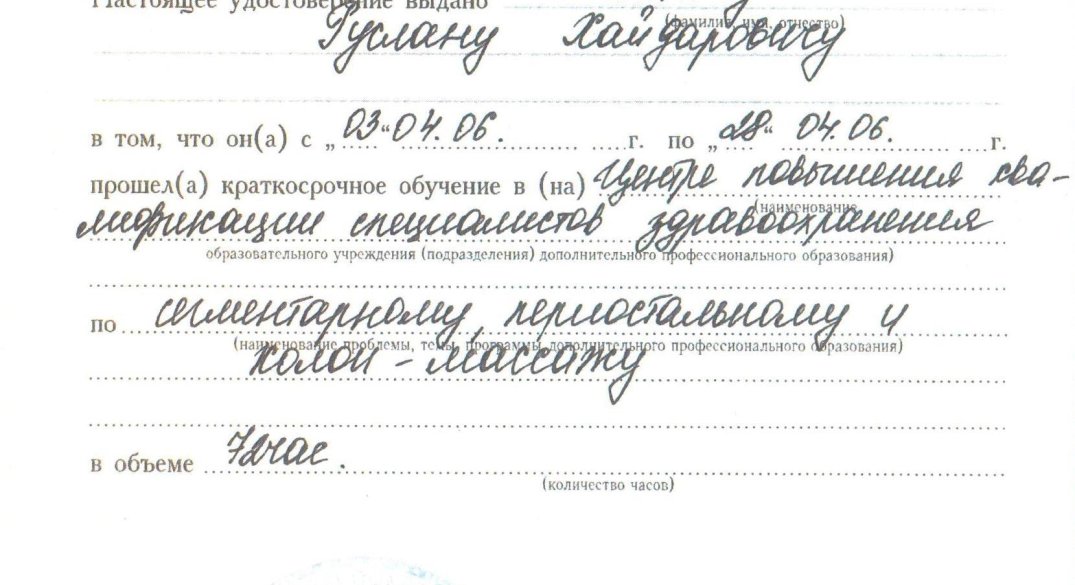 Настоящее удостоверение выдано
(фамилия, имя, отчество)
Руслану Хайдаровичу
в том, что он(а) с „03“ 04. 06. г. по „28“ 04. 06. г.
прошел(а) краткосрочное обучение в (на) Центре повышения ква-
(наименование
лификации специалистов здравоохранения
образовательного учреждения (подразделения) дополнительного профессионального образования)
по сегментарному, периостальному и
(наименование проблемы, темы, программы дополнительного профессионального образования)
колон - массажу
в объеме 72 час.
(количество часов)